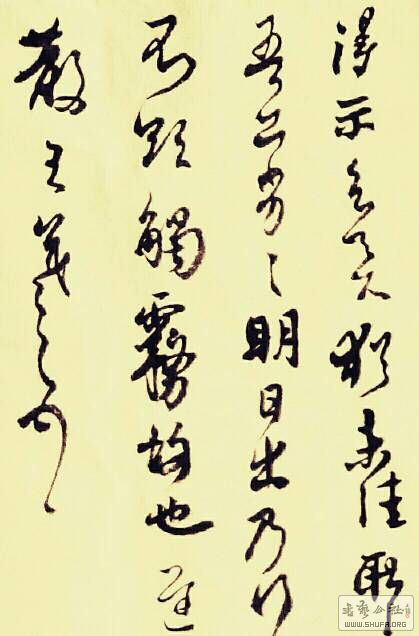 得示知足下猶未佳耿
吾亦劣々明日出乃行
不欲觸霧故也遲
散王羲之頓首
書藝公社
WWW.SHUFA.ORG